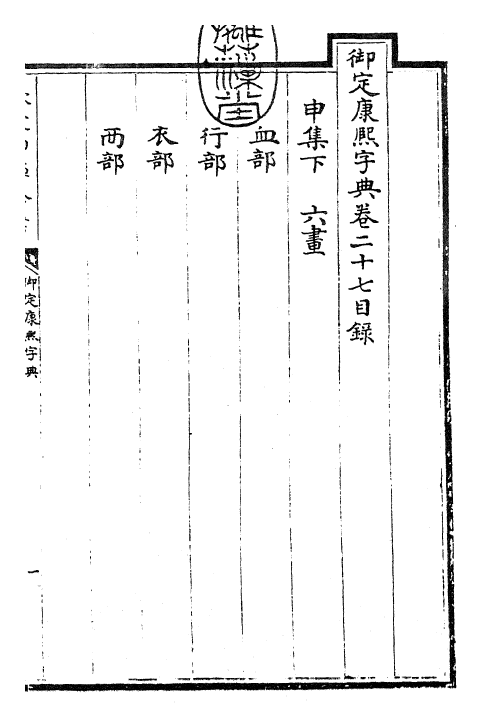 御定康熙字典卷二十七目錄
申集下 六畫
血部
行部
衣部
襾部
御定康熙字典
一